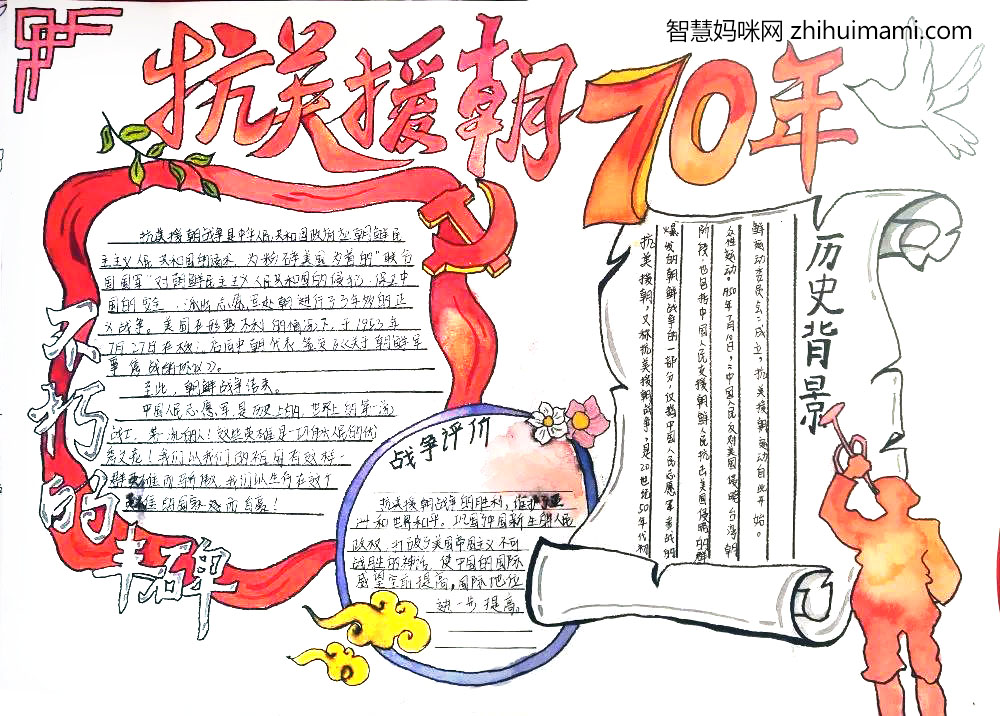 智慧妈咪网 zhihuimami.com
抗美援朝70年
不朽的丰碑
抗美援朝战争是中华人民共和国政府应朝鲜民
主主义人民共和国的请求,为粉碎美国为首的“联合
国国军”对朝鲜民主主义人民共和国的侵犯,保卫中
国的安全 志愿 赴朝进行了3年 的正
义战争。美国在形势不利的情况下,于1953年
7月27日在 后中朝代表签 《关于朝鲜军
事停战的协议》。
至此,朝鲜战争结束。
中国人民志愿军是历史上的、世界上的第一流
战士,第一流的人!这些英雄是一切伟大人民的优
秀之花!我们以我们的祖国有这样
英雄而骄傲,我们以生存在这个
英雄的国家 而自豪!
战争评价
抗美援朝战争的胜利,维护了亚
洲和世界和平,巩固中国新生的人民
政权,打破了美国帝国主义不可
战胜的神话,使中国的国际
威望空前提高,国际地位
进一步提高。
历史背景
抗美援朝,又称抗美援朝战争,是20世纪50年代初
爆发的朝鲜战争的一部分,仅指中国人民志愿军参战的
阶段,也包括中国人民支援朝鲜人民抗击美国侵略的群
众性运动。1950年7月10日,“中国人民反对美国侵略台湾朝
鲜运动委员会”成立,抗美援朝运动自此开始。